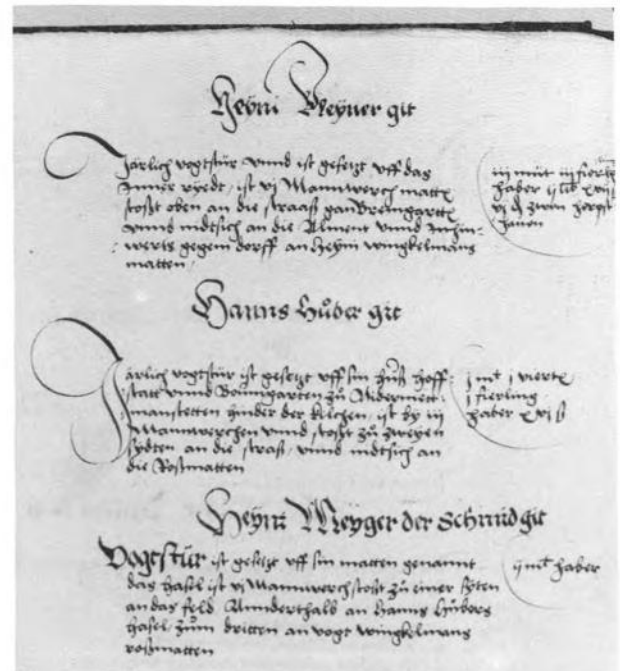 Heyni Meyner git
Järlich vogtstür vnnd ist gesetzt vff das
Inner ryedt, ist vj Mannwerch matten
stoßt oben an die straaß gan Bremgartten
vnnd nidtsich an die Alment vnnd Inhin-
werts gegem dorff an Heyni wingkelmans
matten
iij müt iij fierling
haber
vj
hanen
Hanns Hůber git
Järlich vogtstür ist gesetzt vff sin Huß hoff-
statt vnnd Boumgarten zů Nidermett-
manstetten hinder der kilchen, ist by iij
Mannwerchen vnnd stoßt zů zweyen
sydten an die straß, vnnd nidtsich an
die Roßmatten
j mt j viertel
j fierling
haber xvj ß
Heyni Meyger der Schmid git
Vogtstür ist gesetzt vff sin matten genannt
das hasel ist vj Mannwerch stoßt zů einer syten
an das feld Annderthalb an Hanns Hůbers
hasel, zum dritten an vogt wingkelmans
roßmatten
ij mt haber